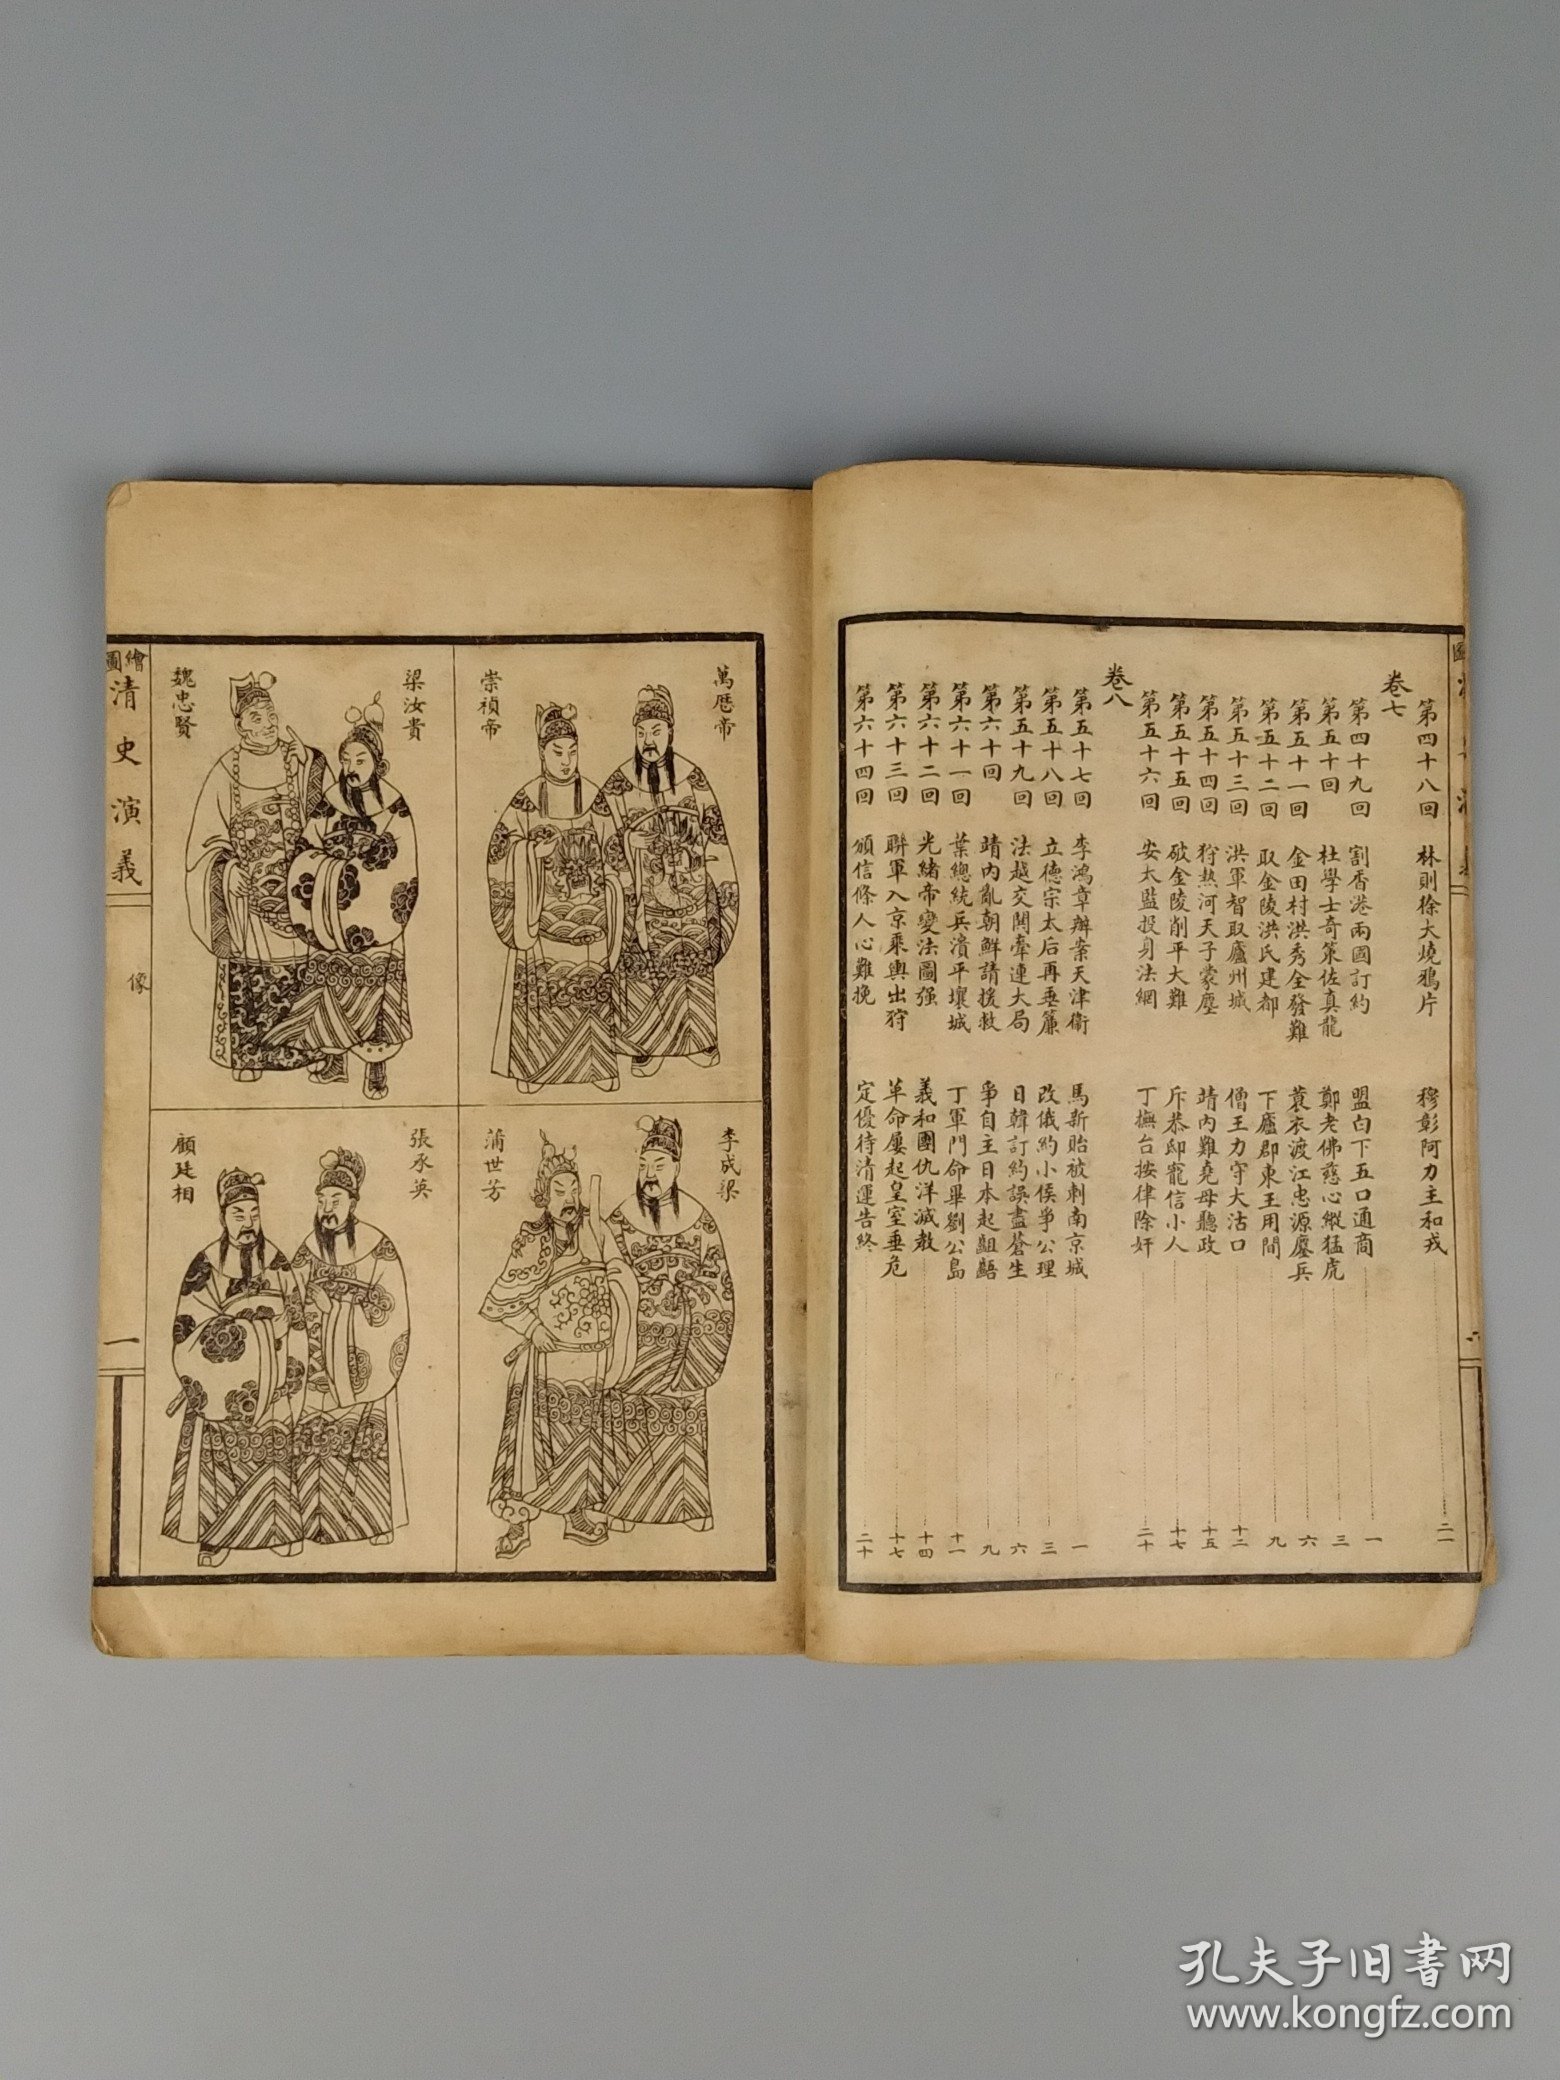 第四十八回 林則徐大燒鴉片 穆彰阿力主和戎 二一
卷七
第四十九回 割香港兩國訂約 盟白下五口通商 一
第五十回 杜學士奇策佐真龍 鄭老佛慈心縱猛虎 三
第五十一回 金田村洪秀全發難 蓑衣渡江忠源鏖兵 六
第五十二回 取金陵洪氏建都 下廬郡東王用間 九
第五十三回 洪軍智取廬州城 僧王力守大沽口 十二
第五十四回 狩热河天子蒙塵 靖內難堯母聽政 十五
第五十五回 破金陵削平大難 斥恭邸寵信小人 十七
第五十六回 安太監投身法網 丁撫台按律除奸 二十
卷八
第五十七回 李鴻章辦案天津衞 馬新貽被刺南京城 一
第五十八回 立德宗太后再垂簾 改俄約小侯爭公理 三
第五十九回 法越交関牽連大局 日韓訂約誤盡蒼生 六
第六十回 靖內亂朝鮮請援救 爭自主日本起齟齬 九
第六十一回 葉總統兵潰平壤城 丁軍門命畢劉公島 十一
第六十二回 光緒帝變法圖强 義和團仇洋滅教 十四
第六十三回 聯軍入京乘輿出狩 革命屢起皇室垂危 十七
第六十四回 頒信條人心難挽 定優待清運告終 二十
萬厯帝
崇禎帝
李成梁
蒲世芳
梁汝貴
魏忠賢
張承英
顧廷相
繪圖
清史演義
像
一
孔夫子旧书网
www.kongfz.com